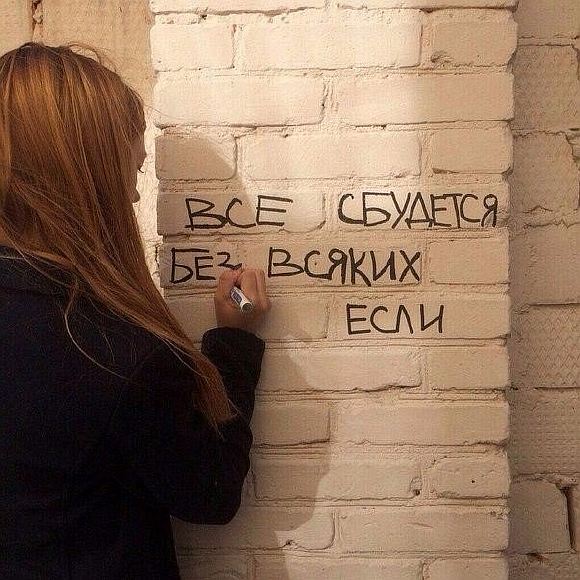 ВСЕ СБУДЕТСЯ
БЕЗ ВСЯКИХ
ЕСЛИ